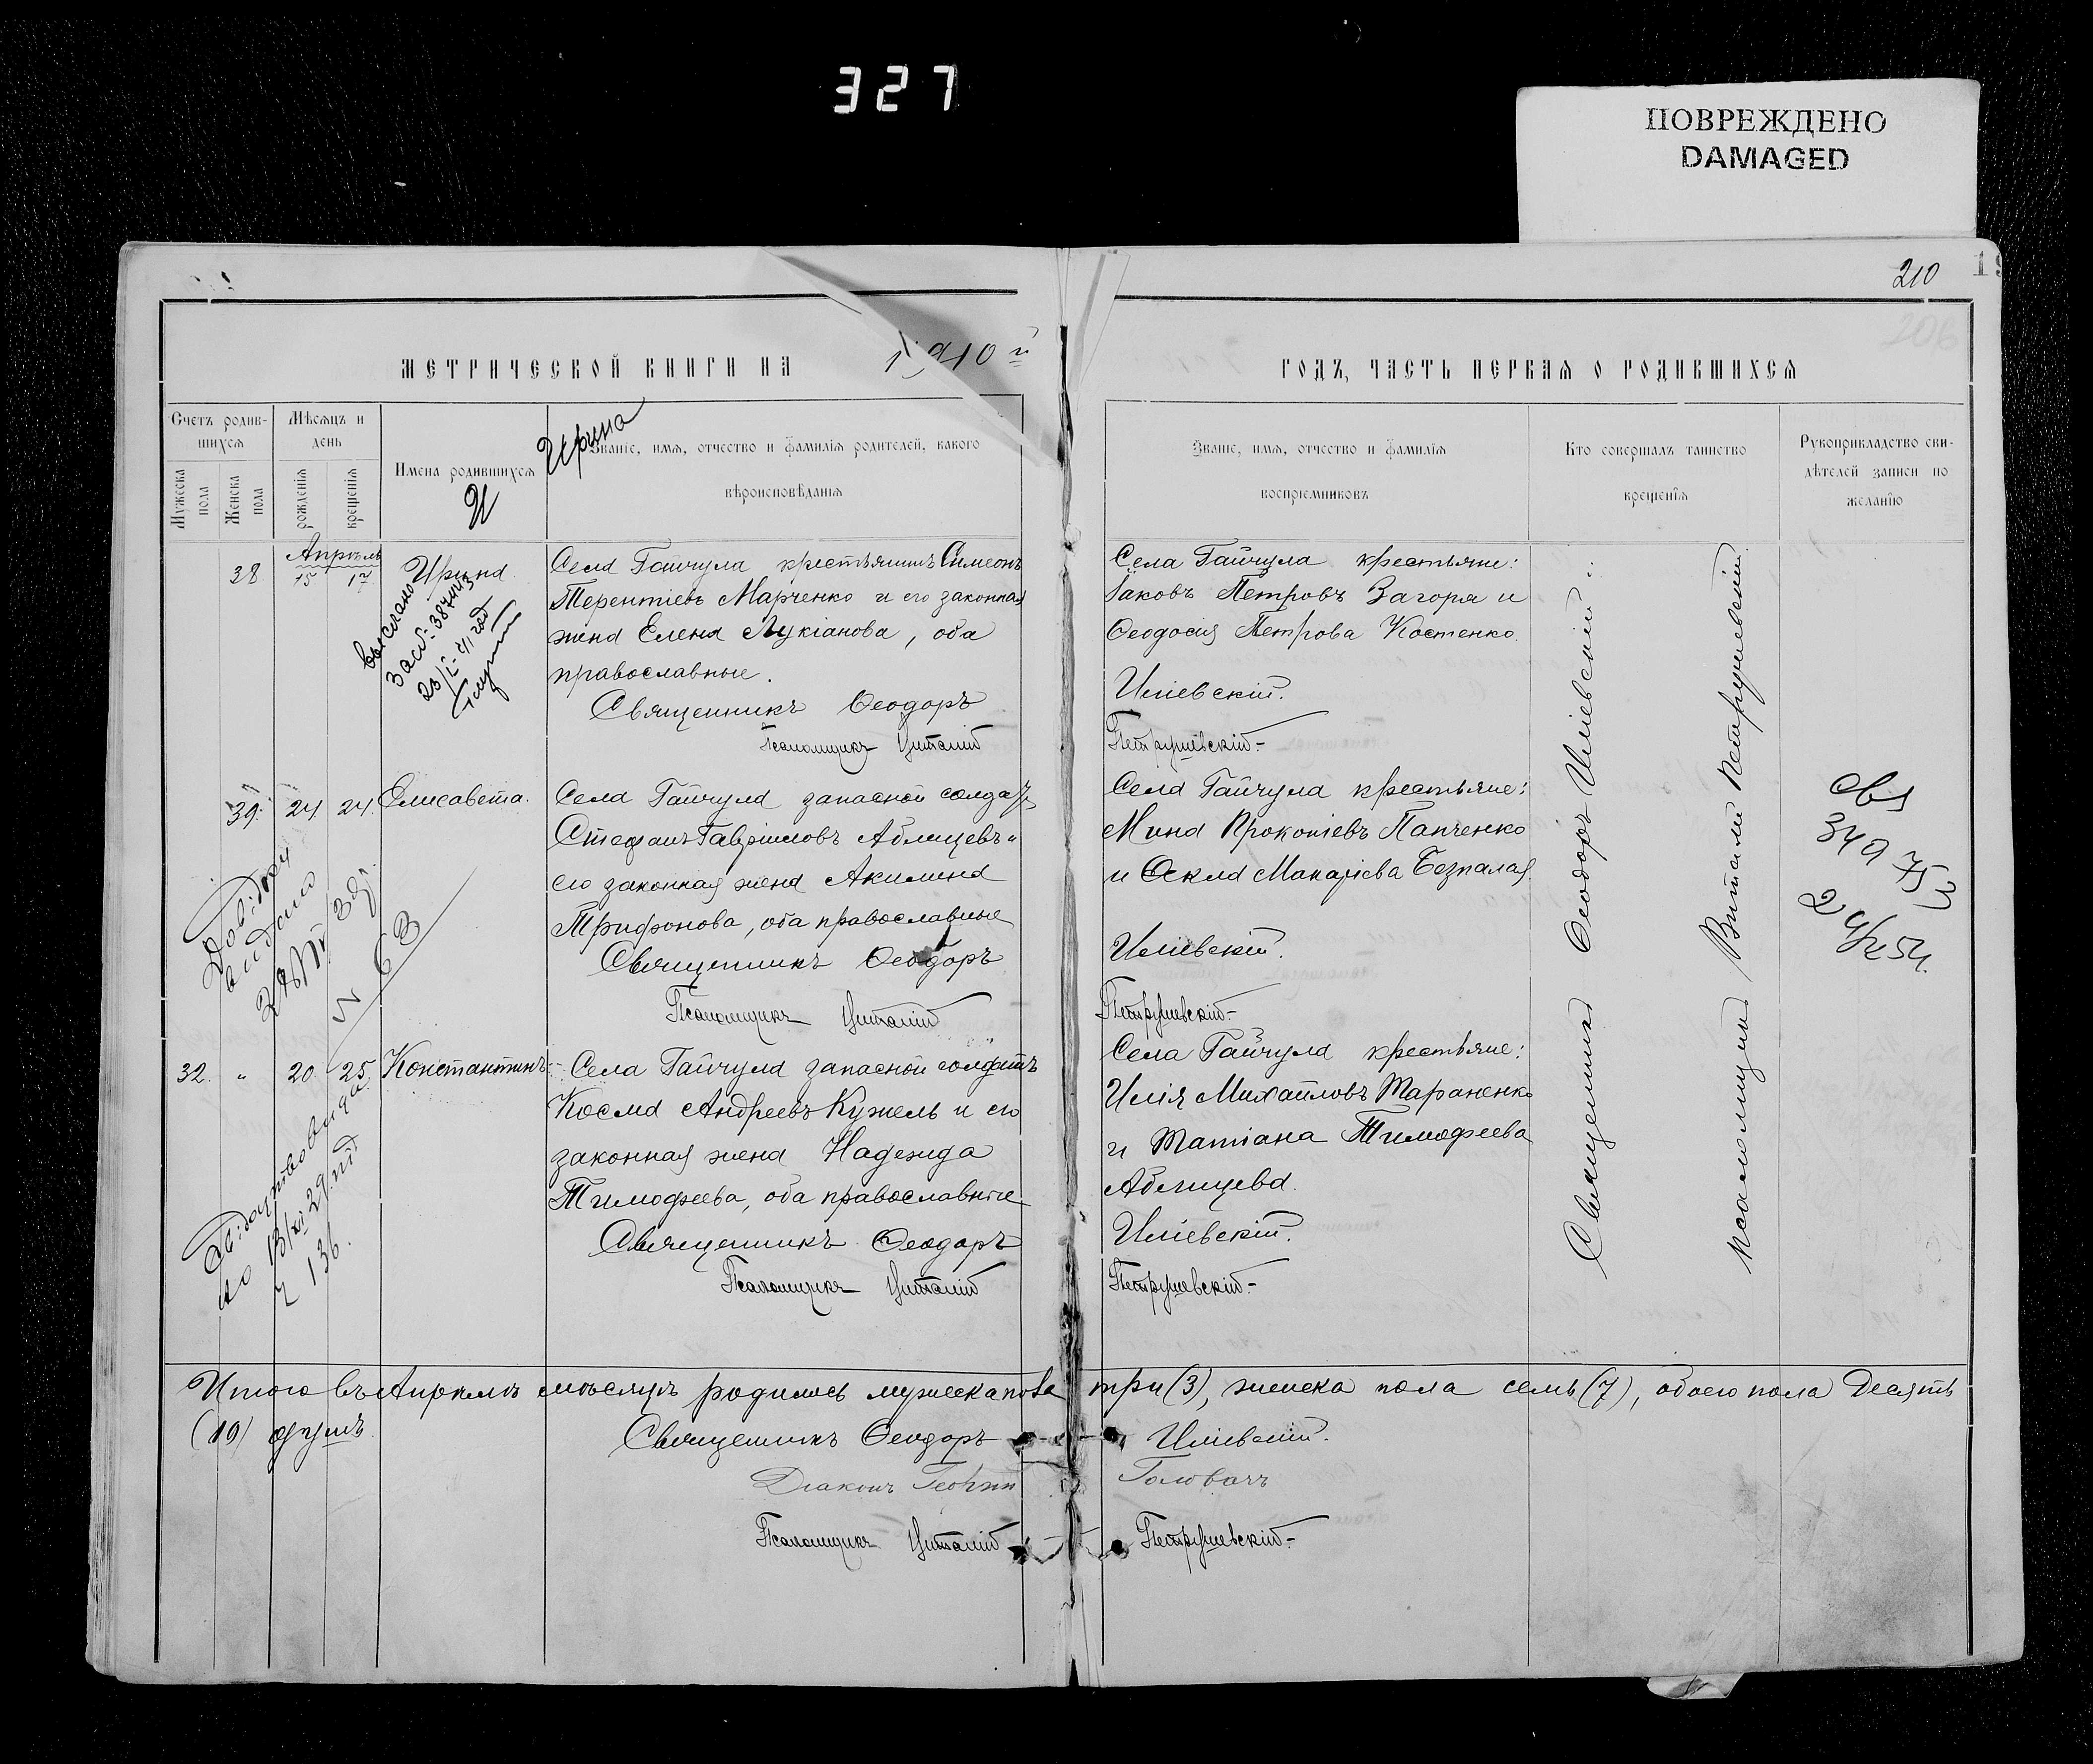 327
ПОВРЕЖДЕНО
DAMAGED
210
206
МЕТРИЧЕСКОЙ КНИГИ НА 1910 й
ГОДЪ, ЧАСТЬ ПЕРВАЯ О РОДИВШИХСЯ
Счетъ родив-
шихся
Мужеска пола
Женска пола
Мѣсяцъ и
день
рожденія
крещенія
Имена родившихся
И
Ирина
Званіе, имя, отчество и фамилія родителей, какого
вѣроисповѣданія
Званіе, имя, отчество и фамилія
воспріемниковъ
Кто совершалъ таинство
крещенія
Рукоприкладство сви-
дѣтелей записи по
желанію
Апрѣль
38 15 17 Ирина
выслано
Села Гайчула крестьянинъ Симеонъ
Терентіевъ Марченко и его законная
жена Елена Лукіанова, оба
православные.
Священникъ Ѳеодоръ
Псаломщикъ Виталій
Села Гайчула крестьяне:
Іаковъ Петровъ Загоря и
Ѳеодосія Петрова Костенко.
Иліевскій.
Петрушевскій
39. 24. 24. Елисавета.
Довідку
видано
N 63
Села Гайчула запасной солдатъ
Стефанъ Гавріиловъ Аблицевъ и
его законная жена Акилина
Трифонова, оба православные
Священникъ Ѳеодоръ
Псаломщикъ Виталій
Села Гайчула крестьяне:
Мина Прокопіевъ Панченко
и Ѳекла Макаріева Безпалая
Иліевскій.
Петрушевскій
32. " 20. 25 Константинъ
136.
Села Гайчула запасной солдатъ
Косма Андреевъ Кужель и его
законная жена Надежда
Тимофеева, оба православные
Священникъ Ѳеодоръ
Псаломщикъ Виталій
Села Гайчула крестьяне:
Илія Михайловъ Тараненко
и Татіана Тимофеева
Аблицева.
Иліевскій.
Петрушевскій
Священникъ Ѳеодоръ Иліевскій
Псаломщикъ Виталій Петрушевскій
Итого въ Апрѣлѣ мѣсяцѣ родилось мужеска пола три (3), женска пола семь (7), обоего пола десять
(10) душъ.
Священникъ Ѳеодоръ Иліевскій.
Діаконъ Георгій Головачъ
Псаломщикъ Виталій Петрушевскій